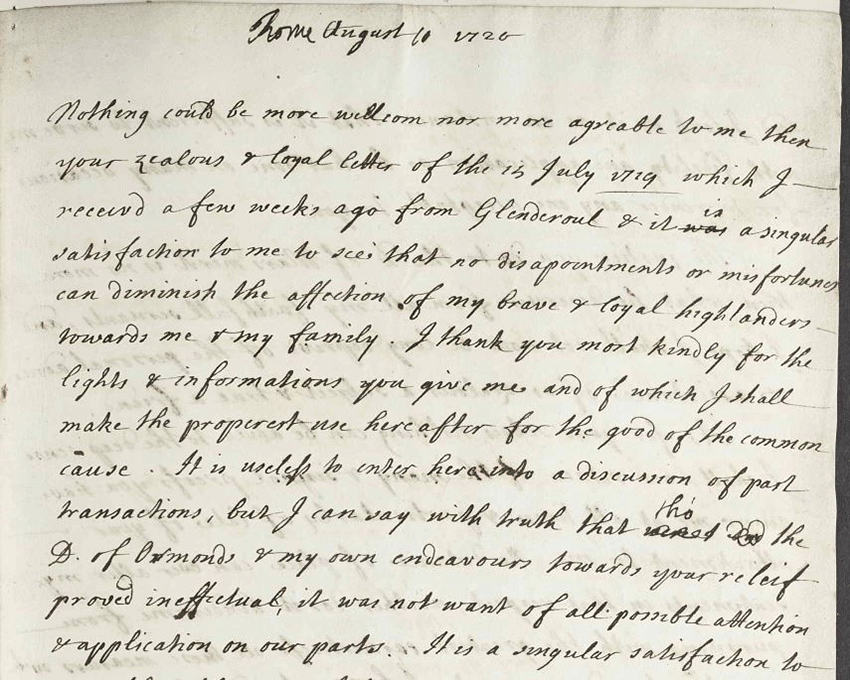 Rome August 10 1720
Nothing could be more wellcom nor more agreable to me then
your zealous & loyal letter of the 15 July 1719 which I
receivd a few weeks ago from Glenderoul & it is a singular
satisfaction to me to see that no disapointments or misfortunes
can diminish the affection of my brave & loyal highlanders
towards me & my family. I thank you most kindly for the
lights & informations you give me and of which I shall
make the properest use hereafter for the good of the common
cause. It is useless to enter here into a discussion of past
transactions, but I can say with truth that tho' the
D. of Ormonds & my own endeavours towards your releif
proved ineffectual, it was not want of all possible attention
& application on our parts. It is a singular satisfaction to